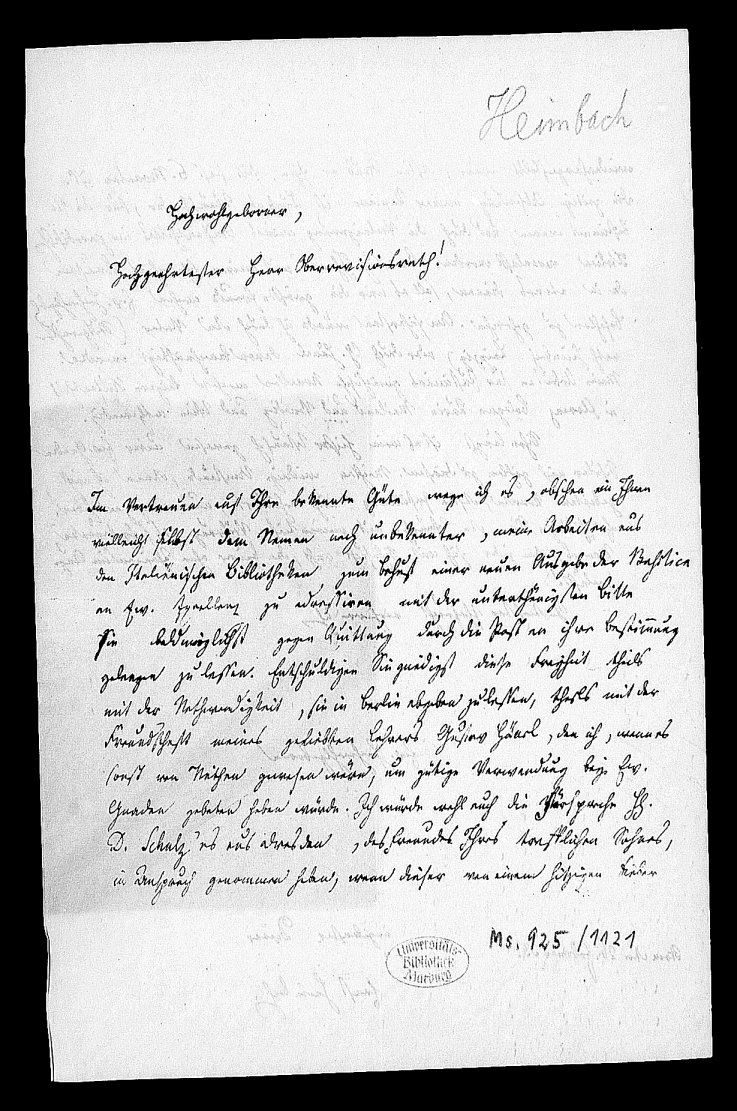 Heimbach
Hochwohlgeborner,
Hochgeehrtester Herr Oberrevisionsrath!
Im Vertrauen auf Ihre bekannte Güte wage ich es, obschon ein Ihnen
vielleicht selbst dem Namen nach unbekannter, meine Arbeiten aus
den Italienischen Bibliotheken zum Behuf einer neuen Ausgabe der Basilica
an Ew. Excellenz zu adressiren mit der unterthänigsten Bitte
sie baldmöglichst gegen Quittung durch die Post an ihre Bestimmung
gelangen zu lassen. Entschuldigen Sie gnädigst diese Freyheit theils
mit der Nothwendigkeit, sie in Berlin abgeben zu lassen, theils mit der
Freundschaft meines geliebten Lehrers Gustav Hänel, den ich, wenn es
sonst von Nöthen gewesen wäre, um gütige Verwendung bey Ew.
Gnaden gebeten haben würde. Ich würde wohl auch die Fürsprache HH.
D. Schulz'es aus Dresden, des Freundes Ihres trefflichen Sohnes,
in Anspruch genommen haben, wenn dieser von einem hitzigen Fieber
Universitäts-
Bibliothek
Marburg
Ms. 925/1121